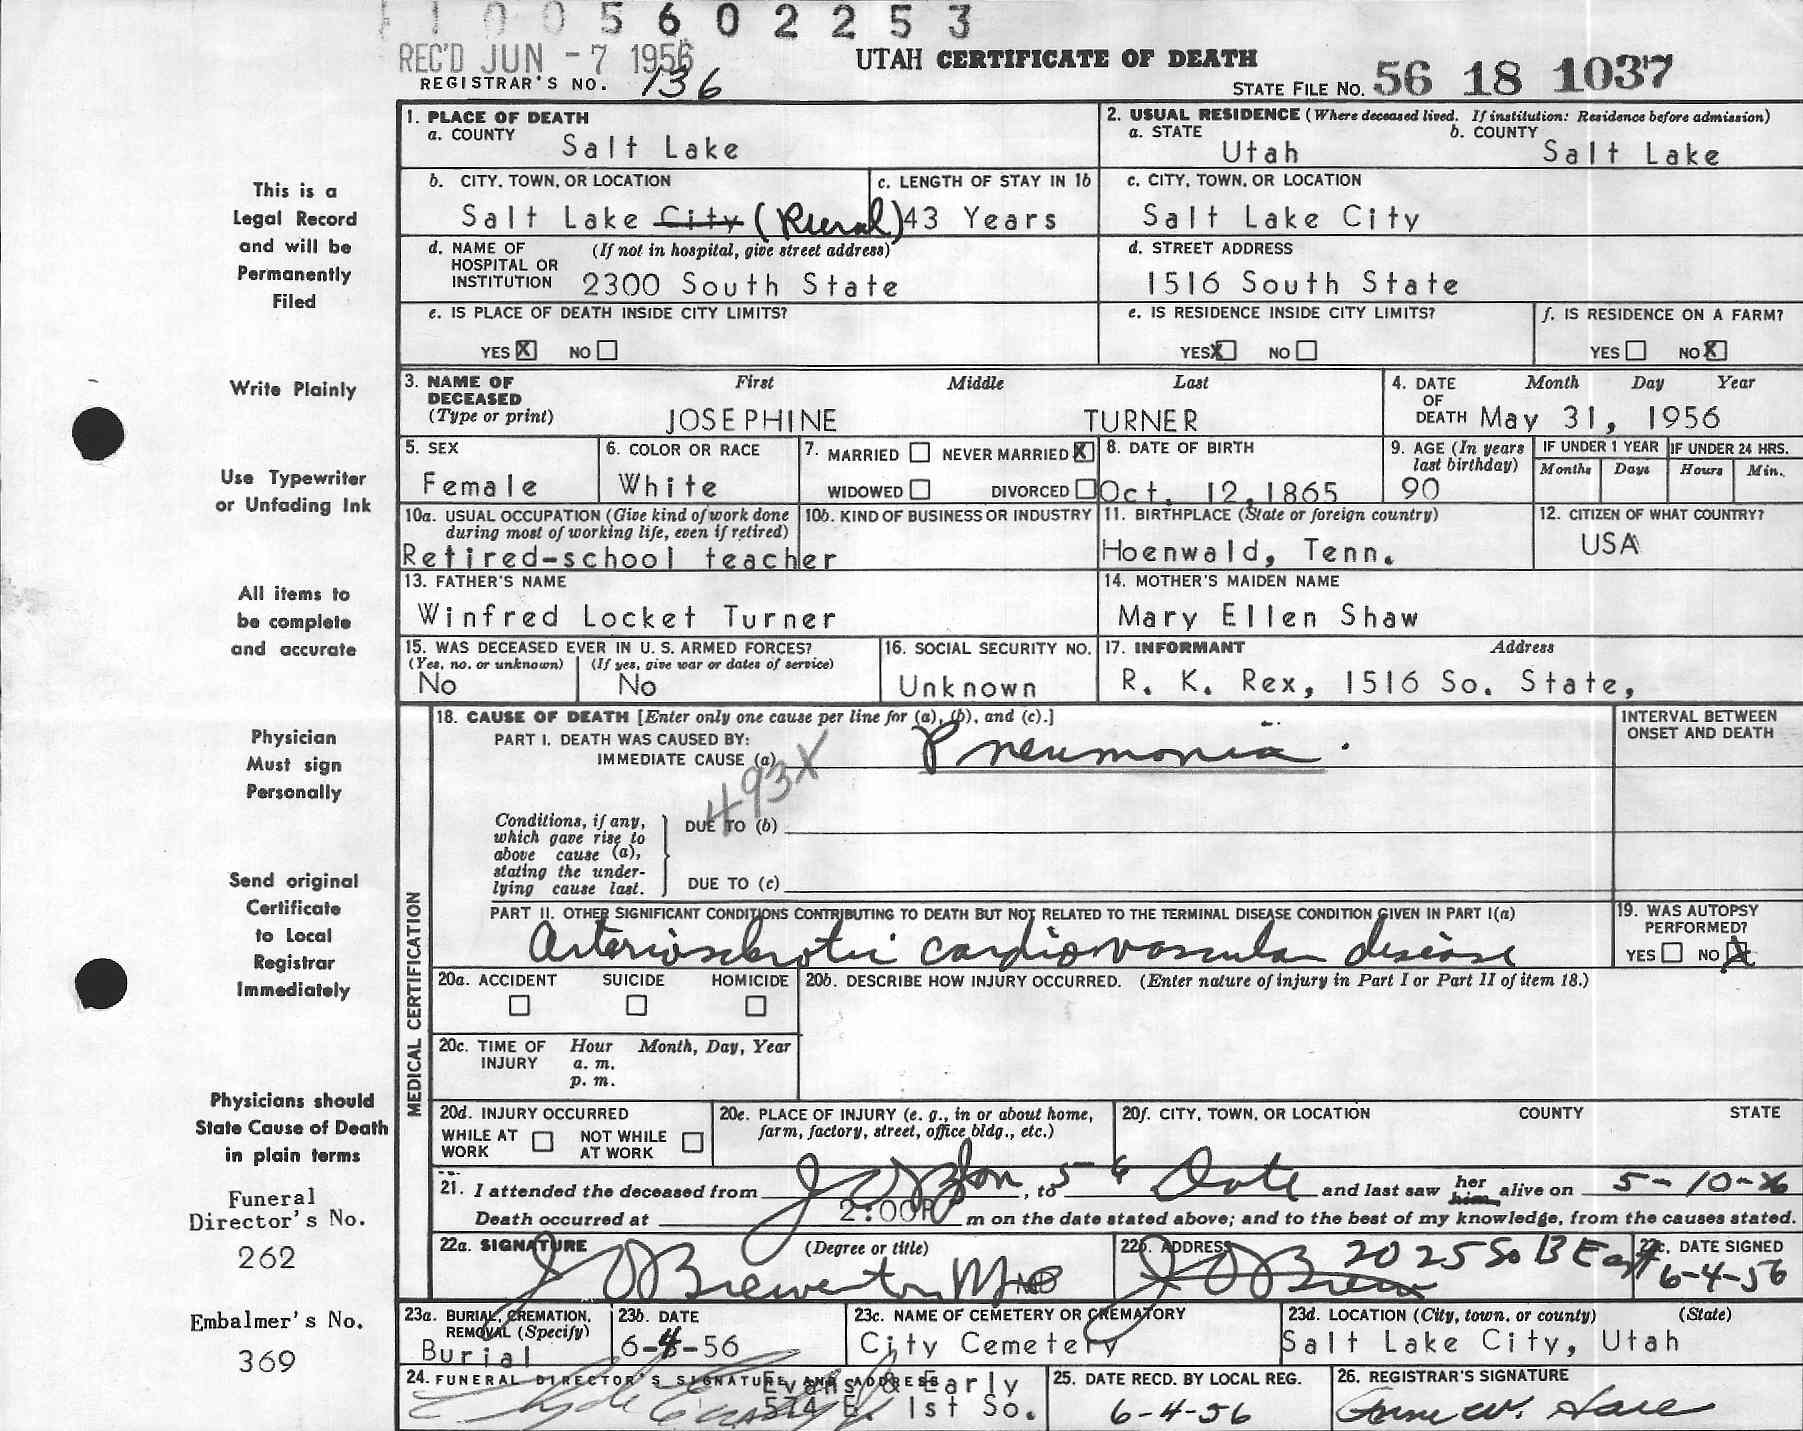 1005602253
REC'D JUN -7 1956
UTAH CERTIFICATE OF DEATH
REGISTRAR'S NO. 136
STATE FILE NO. 56 18 1037
This is a
Legal Record
and will be
Permanently
Filed
Write Plainly
Use Typewriter
or Unfading Ink
All items to
be complete
and accurate
Physician
Must sign
Personally
Send original
Certificate
to Local
Registrar
Immediately
Physicians should
State Cause of Death
in plain terms
Funeral
Director's No.
262
Embalmer's No.
369
1. PLACE OF DEATH
a. COUNTY Salt Lake
2. USUAL RESIDENCE (Where deceased lived. If institution: Residence before admission)
a. STATE Utah b. COUNTY Salt Lake
b. CITY, TOWN, OR LOCATION
Salt Lake City (Rural)
c. LENGTH OF STAY IN 1b
43 Years
c. CITY, TOWN, OR LOCATION
Salt Lake City
d. NAME OF HOSPITAL OR INSTITUTION (If not in hospital, give street address)
2300 South State
d. STREET ADDRESS
1516 South State
e. IS PLACE OF DEATH INSIDE CITY LIMITS?
YES X NO
e. IS RESIDENCE INSIDE CITY LIMITS?
YES X NO
f. IS RESIDENCE ON A FARM?
YES NO X
3. NAME OF DECEASED (Type or print)
First Middle Last
JOSEPHINE TURNER
4. DATE OF DEATH Month Day Year
May 31, 1956
5. SEX
Female
6. COLOR OR RACE
White
7. MARRIED NEVER MARRIED X
WIDOWED DIVORCED
8. DATE OF BIRTH
Oct. 12, 1865
9. AGE (In years last birthday)
90
IF UNDER 1 YEAR IF UNDER 24 HRS.
Months Days Hours Min.
10a. USUAL OCCUPATION (Give kind of work done during most of working life, even if retired)
Retired-school teacher
10b. KIND OF BUSINESS OR INDUSTRY
11. BIRTHPLACE (State or foreign country)
Hoenwald, Tenn.
12. CITIZEN OF WHAT COUNTRY?
USA
13. FATHER'S NAME
Winfred Locket Turner
14. MOTHER'S MAIDEN NAME
Mary Ellen Shaw
15. WAS DECEASED EVER IN U. S. ARMED FORCES?
(Yes, no. or unknown) (If yes, give war or dates of service)
No No
16. SOCIAL SECURITY NO.
Unknown
17. INFORMANT Address
R. K. Rex, 1516 So. State,
MEDICAL CERTIFICATION
18. CAUSE OF DEATH [Enter only one cause per line for (a), (b), and (c).]
INTERVAL BETWEEN ONSET AND DEATH
PART I. DEATH WAS CAUSED BY:
IMMEDIATE CAUSE (a) Pneumonia
493X
Conditions, if any, which gave rise to above cause (a), stating the underlying cause last.
DUE TO (b)
DUE TO (c)
PART II. OTHER SIGNIFICANT CONDITIONS CONTRIBUTING TO DEATH BUT NOT RELATED TO THE TERMINAL DISEASE CONDITION GIVEN IN PART I(a)
Arteriosclerotic cardiovascular disease
19. WAS AUTOPSY PERFORMED?
YES NO X
20a. ACCIDENT SUICIDE HOMICIDE
20b. DESCRIBE HOW INJURY OCCURRED. (Enter nature of injury in Part I or Part II of item 18.)
20c. TIME OF INJURY Hour Month, Day, Year
a. m.
p. m.
20d. INJURY OCCURRED
WHILE AT WORK NOT WHILE AT WORK
20e. PLACE OF INJURY (e. g., in or about home, farm, factory, street, office bldg., etc.)
20f. CITY, TOWN, OR LOCATION COUNTY STATE
21. I attended the deceased from , to Date and last saw her him alive on 5-10-56
Death occurred at 2:00P m on the date stated above; and to the best of my knowledge, from the causes stated.
22a. SIGNATURE (Degree or title)
J O Brewerton MD
22b. ADDRESS
2025 So 13 East
22c. DATE SIGNED
6-4-56
23a. BURIAL, CREMATION, REMOVAL (Specify)
Burial
23b. DATE
6-4-56
23c. NAME OF CEMETERY OR CREMATORY
City Cemetery
23d. LOCATION (City, town, or county) (State)
Salt Lake City, Utah
24. FUNERAL DIRECTOR'S SIGNATURE AND ADDRESS
Evans & Early
574 E. 1st So.
25. DATE RECD. BY LOCAL REG.
6-4-56
26. REGISTRAR'S SIGNATURE